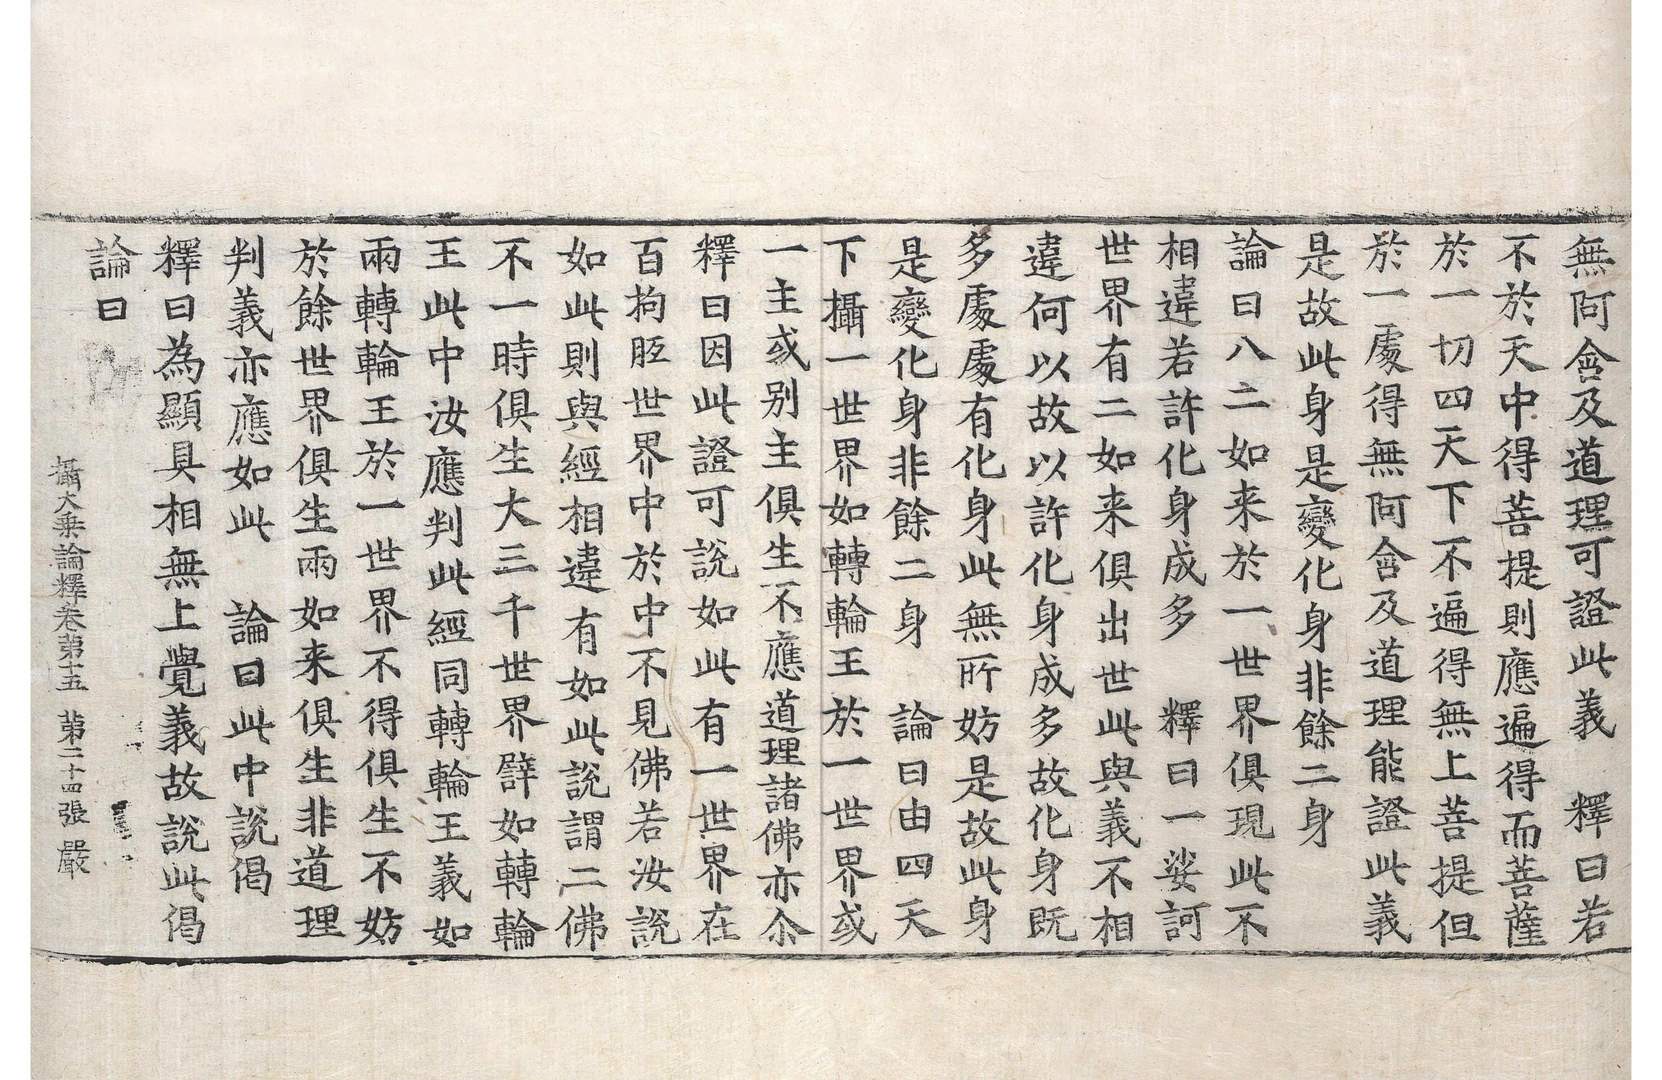 無阿含及道理可證此義　釋曰若
不於天中得菩提則應遍得而菩薩
於一切四天下不遍得無上菩提但
於一處得無阿含及道理能證此義
是故此身是變化身非餘二身
論曰八二如来於一世界俱現此不
相違若許化身成多　釋曰一娑訶
世界有二如来俱出世此與義不相
違何以故以許化身成多故化身既
多處處有化身此無所妨是故此身
是變化身非餘二身　論曰由四天
下攝一世界如轉輪王於一世界或
一主或别主俱生不應道理諸佛亦尒
釋曰因此證可說如此有一世界在
百拘胝世界中於中不見佛若汝説
如此則與經相違有如此說謂二佛
不一時俱生大三千世界譬如轉輪
王此中汝應判此經同轉輪王義如
兩轉輪王於一世界不得俱生不妨
於餘世界俱生兩如来俱生非道理
判義亦應如此　論曰此中說偈
釋曰為顯具相無上覺義故説此偈
論曰
攝大乗論釋卷第十五　第二十四張　嚴